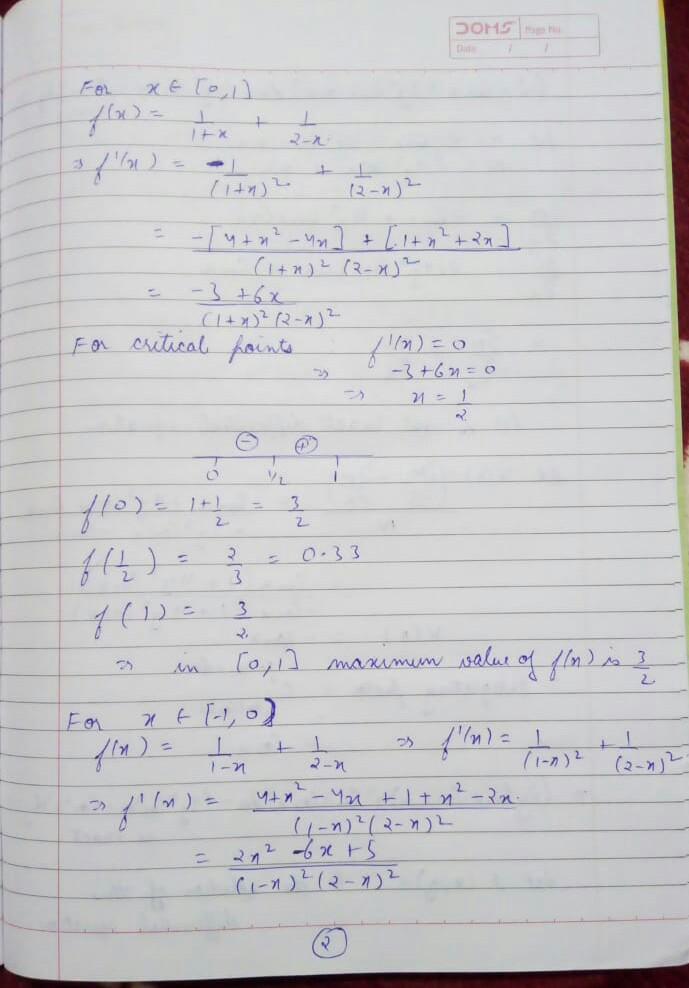 DOMS Page No.
Date / /
For x ∈ [0,1]
f(x) = 1/(1+x) + 1/(2-x)
⇒ f'(x) = -1/(1+x)² + 1/(2-x)²
= (-[4+x²-4x] + [1+x²+2x])/((1+x)² (2-x)²)
= (-3+6x)/((1+x)² (2-x)²)
For critical points f'(x) = 0
⇒ -3+6x=0
⇒ x = 1/2
⊖ ⊕
0 1/2 1
f(0) = 1+1/2 = 3/2
f(1/2) = 2/3 = 0.33
f(1) = 3/2
⇒ in [0,1] maximum value of f(x) is 3/2
For x ∈ [-1,0)
f(x) = 1/(1-x) + 1/(2-x) ⇒ f'(x) = 1/(1-x)² + 1/(2-x)²
⇒ f'(x) = (4+x²-4x+1+x²-2x)/((1-x)² (2-x)²)
= (2x²-6x+5)/((1-x)² (2-x)²)
2